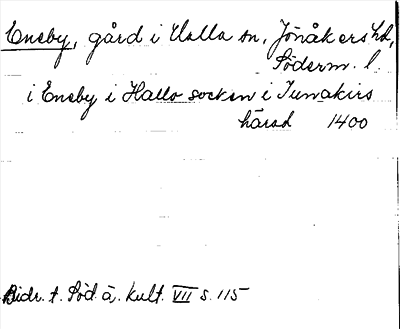 Eneby, gård i Halla sn, Jönåkers hd,
Söderm. l.
i Eneby i Hallo socken i Junakirs
härad 1400
Bidr. t. Söd. ä. kult. VII s. 115